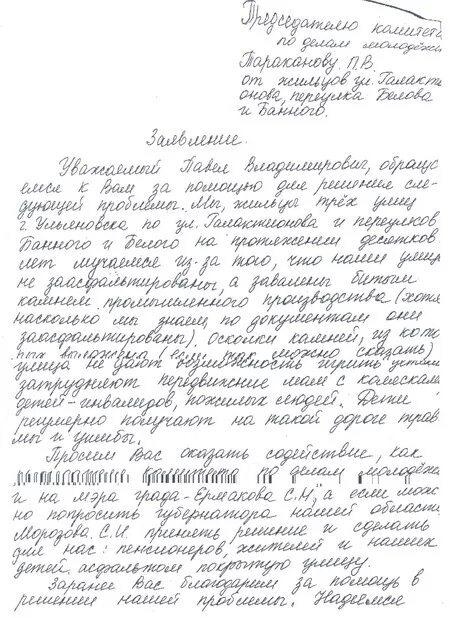 Председателю комитета
по делам молодёжи
Тараканову. П.В.
от жильцов ул. Галакти-
онова, переулка Белова
и Банного.
Заявление.
Уважаемый Павел Владимирович, обращa-
емся к Вам за помощью для решения сле-
дующей проблемы. Мы, жильцы трёх улиц
г. Ульяновска по ул. Галактионова и переулков
Банного и Белого на протяжении десятков
лет мучаемся из-за того, что наши улицы
не заасфальтированы, а завалены битыми
камнями промышленного производства (хотя
насколько мы знаем по документам они
заасфальтированы). Осколки камней, из кото-
рых выложены (если так можно сказать)
улица не дают возможность играть детям
затрудняют передвижение мам с колясками
детей-инвалидов, пожилых людей. Дети
регулярно получают на такой дороге трав-
мы и ушибы.
Просим Вас оказать содействие, как
по делам молодёжи
и на мэра града-Ермакова С.Н, а если мож-
но попросить губернатора нашей области
Морозова. С.И. принять решение и сделать
для нас: пенсионеров, жителей и наших
детей, асфальтом покрытую улицу.
Заранее Вас благодарим за помощь в
решении нашей проблемы. Надеемся